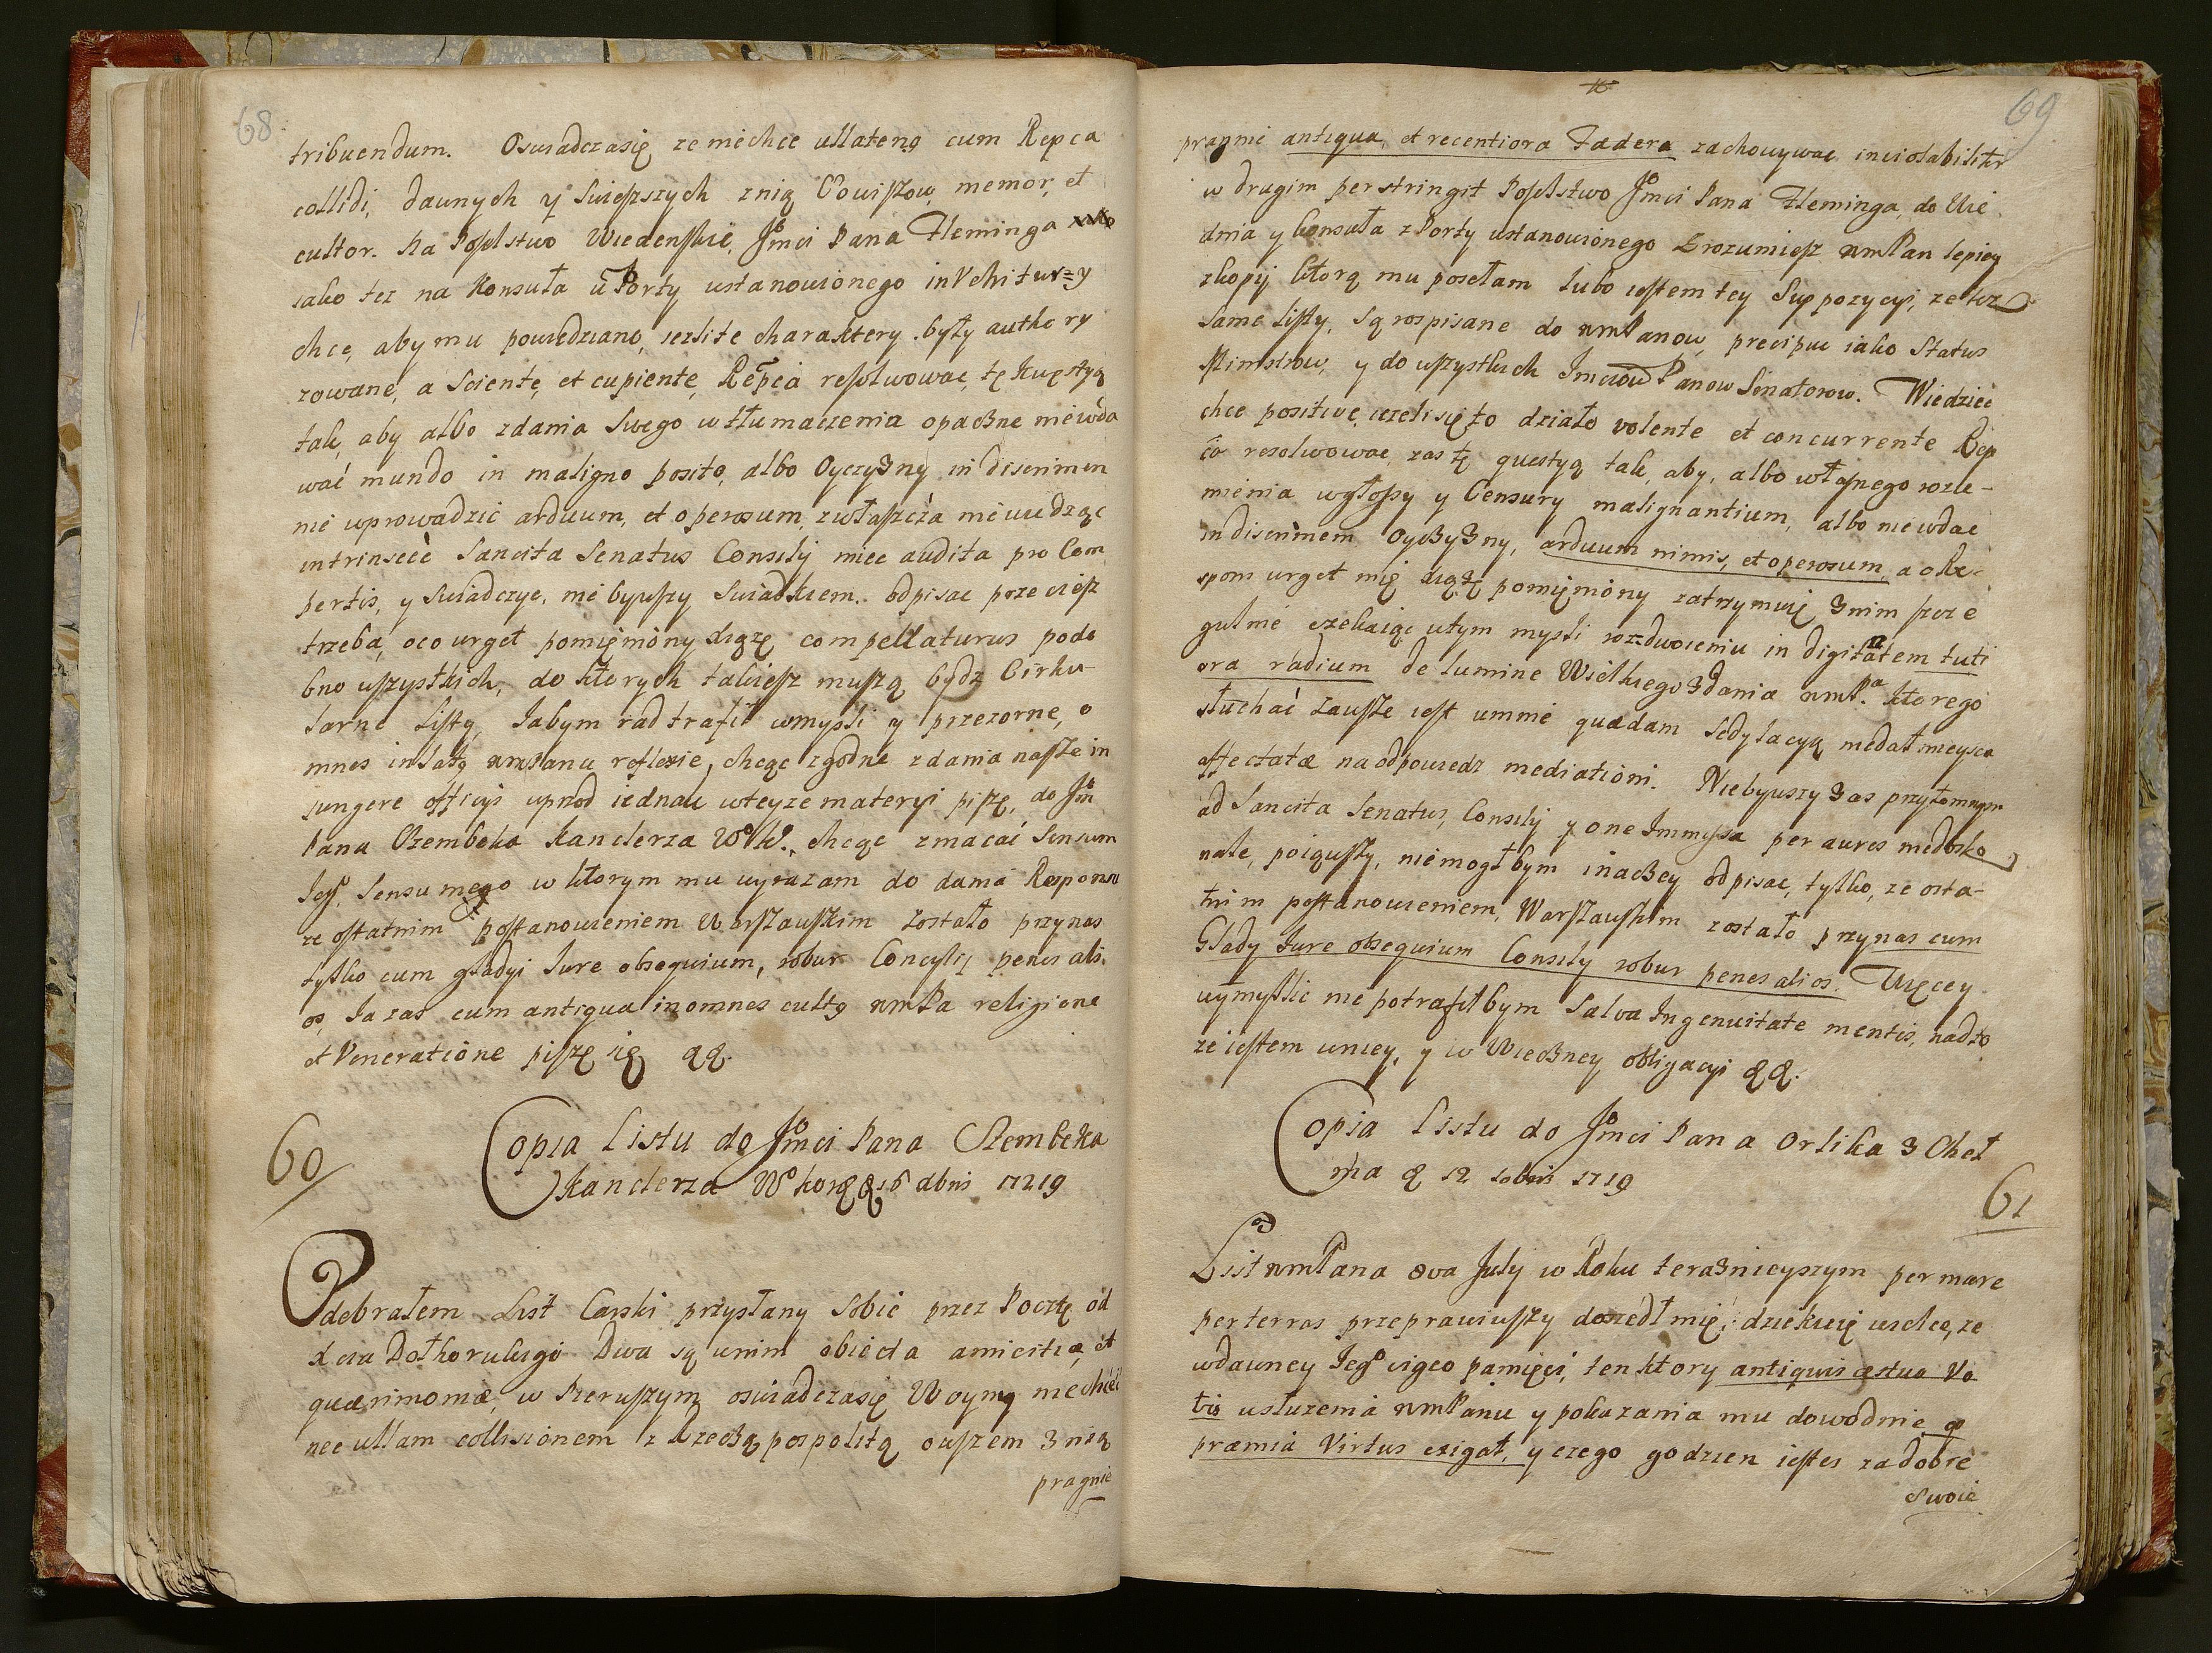 68
tribuendum. Oswiadczasię ze niechce ullatenq cum Repca
collidi, dawnych y Swieszych znią Powiszow, memor, et
cultor. Na Poselstwo Wiedenskie, Jmci Pana Fleminga
iako tez na Konsuła u Porty ustanowionego in Vehitur=y
chce, aby mu powiedziano, iezlite charaktery były authory
zowane, a Sciente, et cupiente, Repca resolwowac, tę kwestyą
tak, aby albo zdania Swego w tłumaczenia opaczne niewda
wać mundo in maligno posito, albo Oyczyzny in discrimen
nie wprowadzic arduum, et operosum, zwłaszcza niewiedząc
intrinsece Sancita Senatus Consilÿ niec audita pro Com
pertis, y Swiadczyc, nie bywszy Swiadkiem. odpisac przeciesz
trzeba, oco urget pomieniony xiąże compellaturus podo
bno wszystkich, do ktorych takiesz muszą bydz Cirku-
larne Listy, Jabym rad trafił wmysli y przezorne, o
mnes in Latq wmPana reflexie, chcąc zgodne zdania nasze in
jungere officijs wprzod iednak wteyze materyi piszę, do Jm
Pana Szembeka Kanclerza W° K°., chcąc zmacać Sensum
Jeg°. Sensu mego w ktorym mu wyrazam do dania Respons
ze ostatnim postanowieniem Warszawskim zostało przynas
tylko cum gladyi Jure obsequium, robur Concylij penes ali
os, Ja zas cum antiqua in omnes cultq wmPa religione
et Veneratione piszę się &&.
60
Copia Listu do Jmci Pana Szembeka
Kanclerza W° kor & 16 dbris 1719
Odebrałem List Carski przysłany Sobie przez Pocztę od
Xcia Dołhorukiego Dwa są wnim obiecta amicitiæ, et
quærimoniæ, w Pierwszym oswiadczasię Woyny niechcieć
nec ullam collisionem z Rzecząpospolitą owszem znią
pragnie
69
pragnie antiqua, et recentiora Fædera zachowywac inviolabiliter
w drugim perstringit Poselstwo Jmci Pana Fleminga, do Wie
dnia y Consuła z Porty ustanowionego Zrozumiesz wmPan lepiey
zkopij ktorą mu posełam lubo iestem tey Suppozycyi, ze tez
same Listy, są rospisane do wmPanow, precipue iako Status
Ministrow, y do wszystkich Jmciow Panow Senatorow. Wiedziec
chce positive, iezeli się to działo volente et concurrente Rep
ca resolwowac, zas tę questyą tak, aby, albo własnego rozu-
mienia wgłosy y Censury malignantium, albo niewdac
in discrimem Oyczyzny, arduum nimis, et operosum, a o Re-
spons urget mię xiąże pomieniony zatrzymuię znim szcze
gulnie czekaiąc wtym mysli rozdwoieniu in digitatem tuti
ora radium de lumine Wielkiego zdania wmPa. ktorego
słuchać zawsze iest umnie quædam
affectatæ na odpowiedz mediationi. Niebywszy zas przytomnym
ad Sancita Senatus, Consilÿ y one Immissa per aures niedosko
nale, poiąwszy, niemogłbym inaczey odpisac, tylko, ze osta-
tnim postanowieniem, Warszawskim zostało przynas cum
Glady Jure obsequium Consily robur penes alios. Więcey
wymyslic nie potrafiłbym Salva Ingenuitate mentis, nadto
ze iestem winey, y w Wieczney obligacyi &&.
Copia Listu do Jmci Pana Orlika z Cheł
ma & 12 1obris 1719
61
List wmPana 8va July w Roku teraznieyszym per mare
per terras przeprawiwszy doszedł mię, dziekuię wielce, ze
wdawney Jeg° vigeo pamięci, ten ktory antiquis æstuo Vo
tis usłuzenia wmPanu y pokazania mu dowodnie q
præmia Virtus exigat, y czego godzien iestes za dobre
Swoie